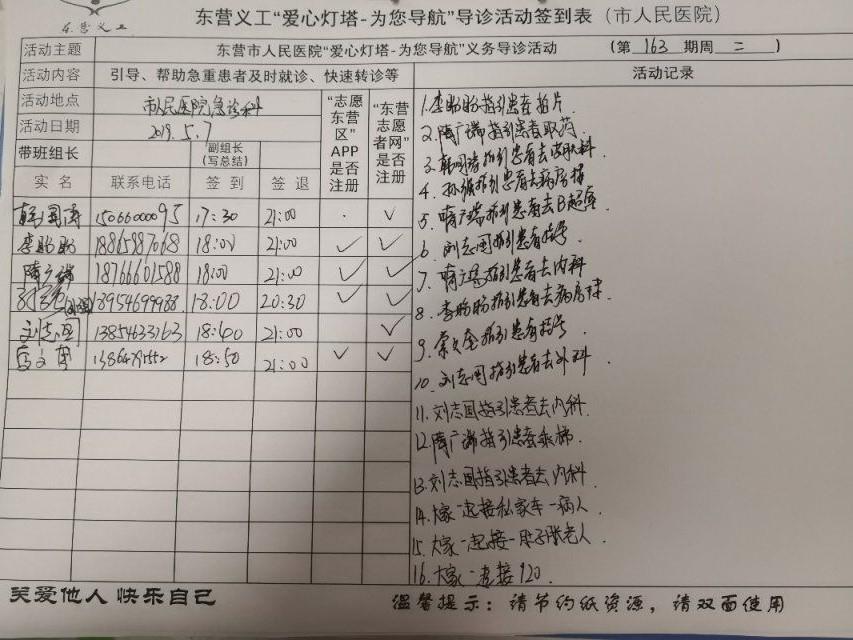 东营义工
东营义工“爱心灯塔-为您导航”导诊活动签到表（市人民医院）
活动主题 东营市人民医院“爱心灯塔-为您导航”义务导诊活动 （第 163 期周 二 ）
活动内容 引导、帮助急重患者及时就诊、快速转诊等 活动记录
活动地点 市人民医院急诊科
活动日期 2019.5.7
带班组长 副组长（写总结）
“志愿东营区”APP是否注册
“东营志愿者网”是否注册
实名 联系电话 签到 签退
韩国涛 15066000095 17:30 21:00 . ✓
李盼盼 18865887068 18:00 21:00 ✓ ✓
隋广瑞 18766601588 18:00 21:00 ✓ ✓
18954699988 18:00 20:30 ✓ ✓
刘志国 13854633163 18:40 21:00 ✓
18:50 21:00 ✓ ✓
1.李盼盼指引患者拍片
2.隋广瑞指引患者取药
3.韩国涛指引患者去皮肤科
4. 指引患者去病房楼
5.隋广瑞指引患者去B超室
6.刘志国指引患者挂号
7.隋广瑞指引患者去内科
8.李盼盼指引患者去病房楼
9. 指引患者挂号
10.刘志国指引患者去外科
11.刘志国指引患者去内科.
12.隋广瑞指引患者乘梯
13.刘志国指引患者去内科.
14.大家一起接私家车一病人.
15.大家一起接一肚子胀老人.
16.大家一起接120.
关爱他人 快乐自己
温馨提示：请节约纸资源，请双面使用